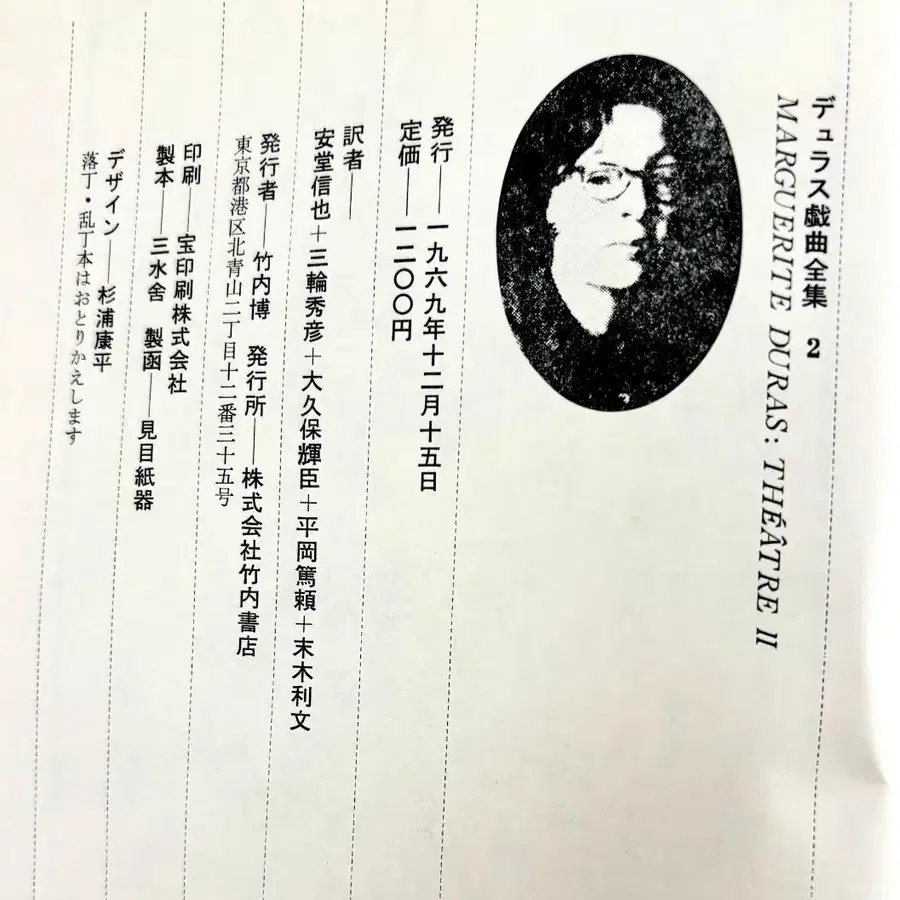 デュラス戯曲全集 2
MARGUERITE DURAS: THÉÂTRE II
発行――一九六九年十二月十五日
定価――一二〇〇円
訳者――
安堂信也+三輪秀彦+大久保輝臣+平岡篤頼+末木利文
発行者――竹内博 発行所――株式会社竹内書店
東京都港区北青山二丁目十二番三十五号
印刷――宝印刷株式会社
製本――三水舎 製函――見目紙器
デザイン――杉浦康平
落丁・乱丁本はおとりかえします